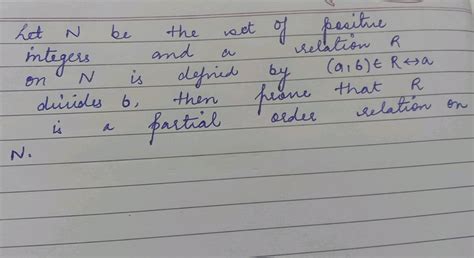 Let N be the set of positive
integers and a relation R
on N is defined by (a,b) ∈ R ↔ a
divides b, then prove that R
is a partial order relation on
N.